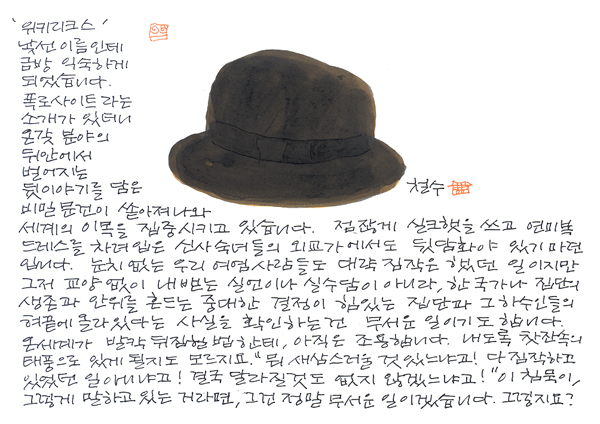 '위키리크스'
낯선 이름인데
금방 익숙하게
되었습니다.
폭로사이트라는
소개가 있더니
온갖 분야의
뒤안에서
벌어지는
뒷이야기를 담은
비밀문건이 쏟아져나와
세계의 이목을 집중시키고 있습니다. 점잖게 실크햇을 쓰고 연미복
드레스를 차려입은 신사숙녀들의 외교가에서도 뒷담화야 있기 마련
입니다. 눈치 없는 우리 여염사람들도 대략 짐작은 했던 일이지만
그저 교양 없이 내뱉는 실언이나 실수담이 아니라, 한 국가나 집단의
생존과 안위를 흔드는 중대한 결정이 힘있는 집단과 그 하수인들의
혀끝에 올라있다는 사실을 확인하는건 무서운 일이기도 합니다.
온세계가 발칵 뒤집힐 법한데, 아직은 조용합니다. 내도록 찻잔속의
태풍으로 있게 될지도 모르지요. "뭐 새삼스러울 것 있느냐고! 다 짐작하고
있었던 일 아니냐고! 결국 달라질 것도 없지 않겠느냐고!" 이 침묵이,
그렇게 말하고 있는 거라면, 그건 정말 무서운 일이겠습니다. 그렇지요?
철수